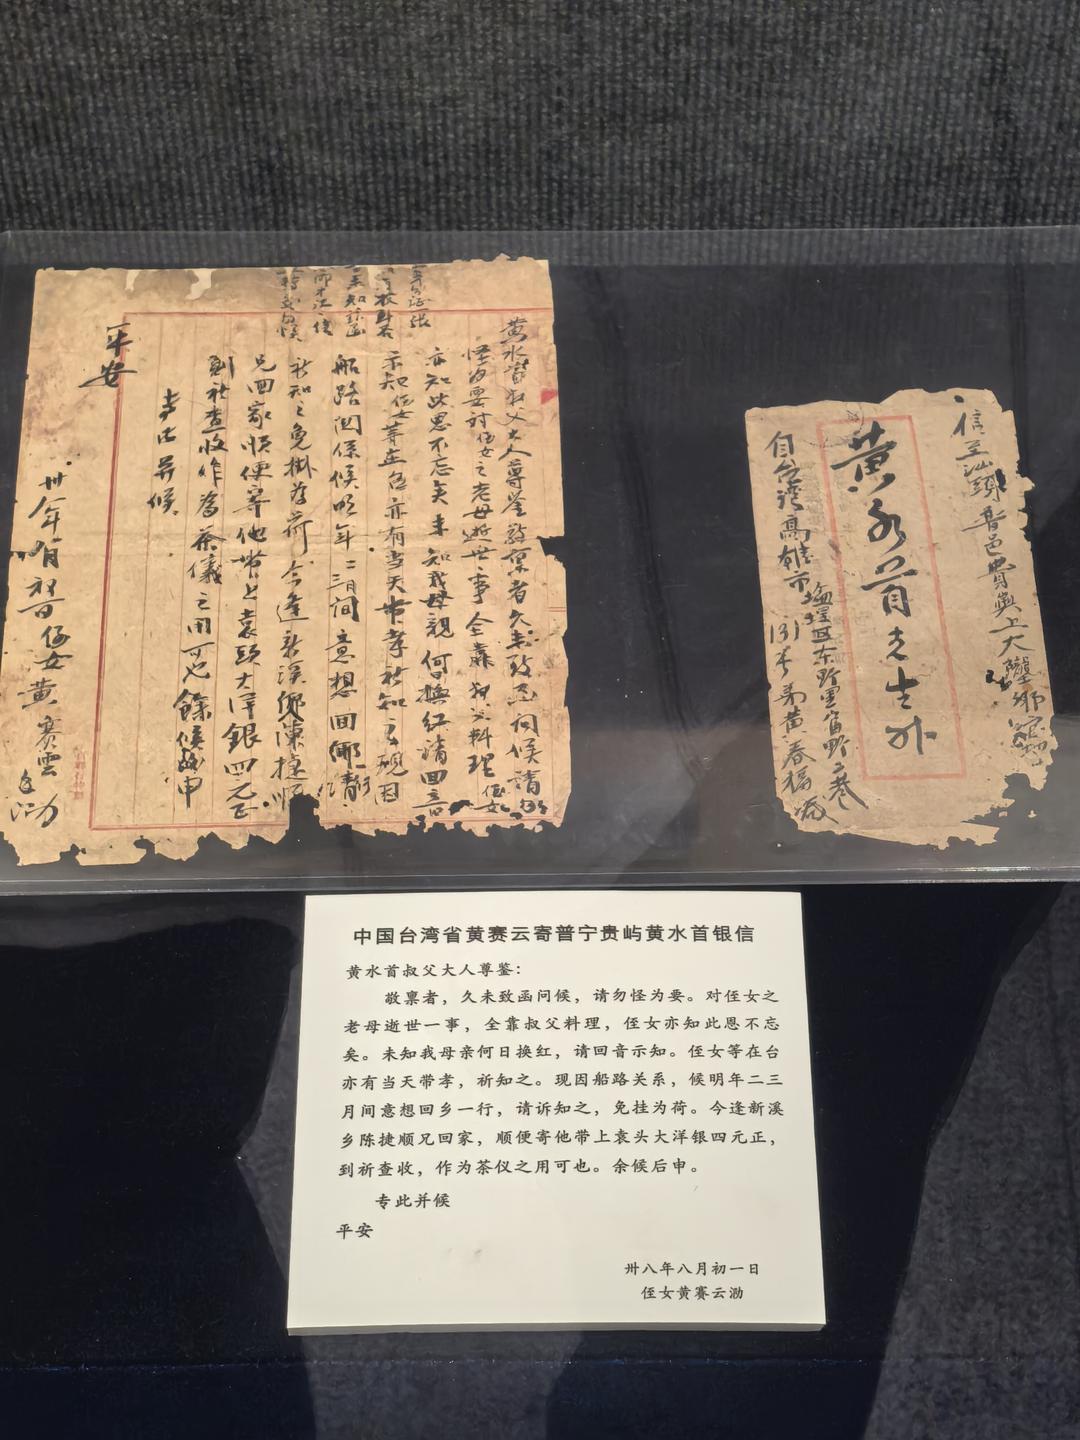 黄水首叔父大人尊鉴敬禀者久未致函问候請勿
怪为要对侄女之老母逝世一事全靠叔父料理侄女
亦知此恩不忘矣未知我母親何日換红請回音
示知侄女等在台亦有当天带孝祈知之現因
船路関係候明年二三月间意想回鄉一行請
祈知之免掛为荷今逢新溪鄉陳捷順
兄回家順便寄他带上袁頭大洋銀四元正
到祈查收作为茶儀之用可也餘候後申
专此并候
平安
卅八年八月初一日侄女黄赛雲泐
信至汕頭普邑貴嶼上大壠鄉
黄水首先生外
自台湾高雄市塩埕区东野里富野二巷
131号弟黄春福緘
中国台湾省黄赛云寄普宁贵屿黄水首银信
黄水首叔父大人尊鉴：
敬禀者，久未致函问候，请勿怪为要。对侄女之
老母逝世一事，全靠叔父料理，侄女亦知此恩不忘
矣。未知我母亲何日换红，请回音示知。侄女等在台
亦有当天带孝，祈知之。现因船路关系，候明年二三
月间意想回乡一行，请诉知之，免挂为荷。今逢新溪
乡陈捷顺兄回家，顺便寄他带上袁头大洋银四元正，
到祈查收，作为茶仪之用可也。余候后申。
专此并候
平安
卅八年八月初一日
侄女黄赛云泐